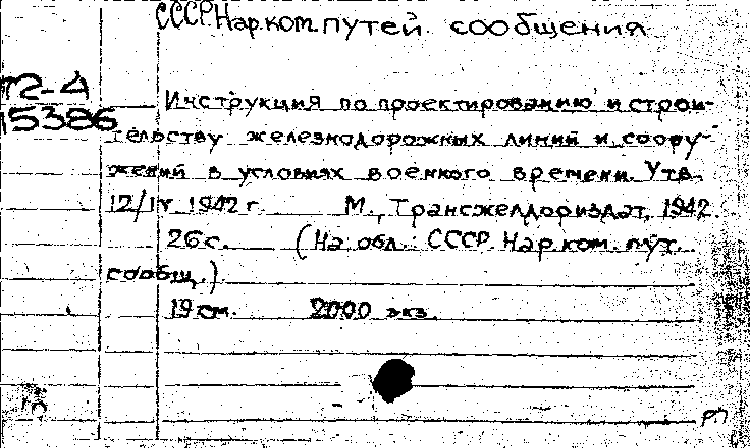 СССР. Нар. ком. путей сообщения
72-4
15386
Инструкция по проектированию и строи-
тельству железнодорожных линий и соору-
жений в условиях военного времени. Утв.
12/IV 1942 г. М., Трансжелдориздат, 1942.
26 с. (На обл.: СССР. Нар. ком. пут.
сообщ.)
19 см. 2000 экз.